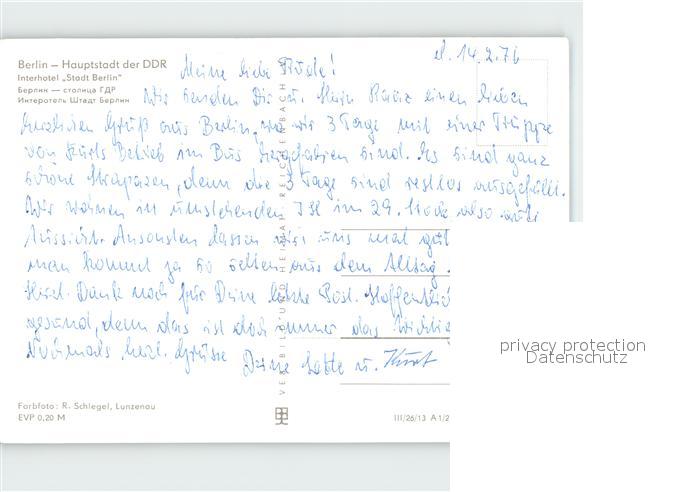 Berlin – Hauptstadt der DDR
Interhotel „Stadt Berlin"
Берлин — столица ГДР
Интеротель Штадт Берлин
d. 14.2.76
Meine liebe !
Wir senden Dir u. einen lieben
herzlichen Gruß aus Berlin, wo wir 3 Tage mit einer Truppe
von Kurts Betrieb im Bus hergefahren sind. Es sind ganz
schöne Strapazen, denn die 3 Tage sind restlos ausgefüllt.
Wir wohnen in umstehenden im 29. Stock also gute
Aussicht. Ansonsten lassen wir's uns mal gut
man kommt ja so selten aus dem Alltag.
Herzl. Dank noch für Deine letzte Post. Hoffentlich
gesund, denn das ist doch immer das
Nochmals herzl. Grüsse Deine Lotte u. Kurt
VERLAG BILD UND HEIMAT REICHENBACH
Farbfoto: R. Schlegel, Lunzenau
EVP 0,20 M
III/26/13 A 1/2
privacy protection
Datenschutz